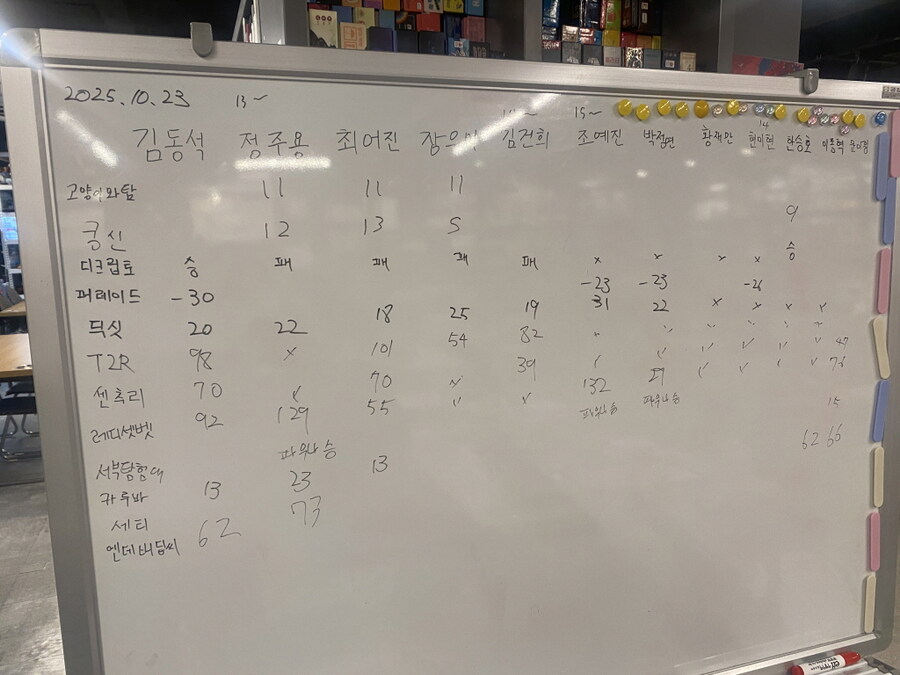 2025.10.23 13~ 15~
김동석 정주용 최어진 김건희 조예진 박정연 황재만 현미현 한승호 이동혁
고양이와탑 11 11 11
콩신 12 13 5 9
디크립토 승 패 패 패 패 x x x x 승
퍼레이드 -30 -23 -23 -26
딕싯 20 22 18 25 19 31 22 x x x x
T2R 98 x 101 54 82 47
센츄리 70 70 39 76
레디셋벳 92 129 55 132 29 15
서부탐험대 파워나 승 파워나 승 파워나 승 62 66
카루바 13 23 13
세티 73
엔데버딥씨 62